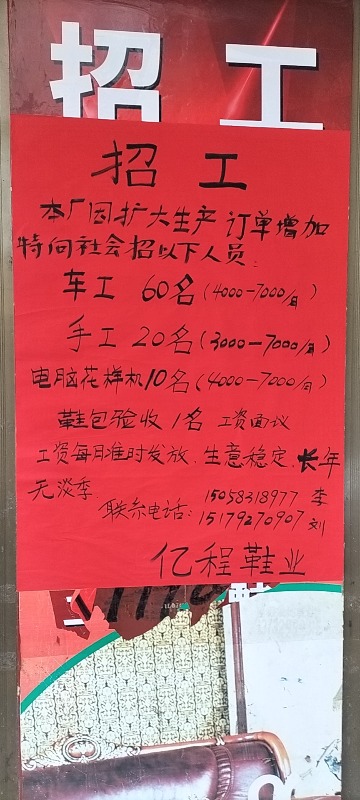 招工
招 工
本厂因扩大生产 订单增加
特向社会招以下人员:
车工 60名(4000-7000/月)
手工 20名(3000-7000/月)
电脑花样机10名(4000-7000/月)
鞋包验收 1名 工资面议
工资每月准时发放.生意稳定.长年
无淡季
联糸电话: 15058318977 李
15179270907 刘
亿程鞋业